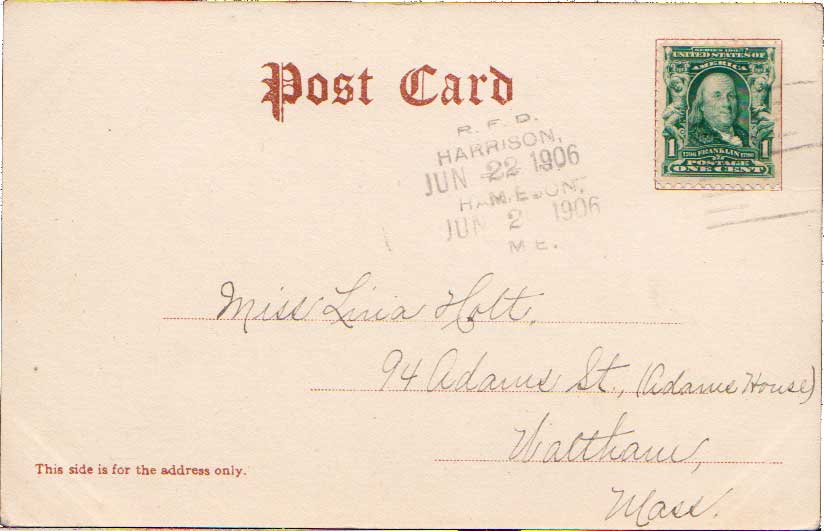 Post Card
SERIES 1902
UNITED STATES OF
AMERICA
1 1706 FRANKLIN 1790 1
POSTAGE
ONE CENT
R. F. D.
HARRISON,
JUN 22 1906
JUN 2 1906
ME.
Miss Lina Holt.
94 Adams St., (Adams House)
Waltham,
Mass.
This side is for the address only.